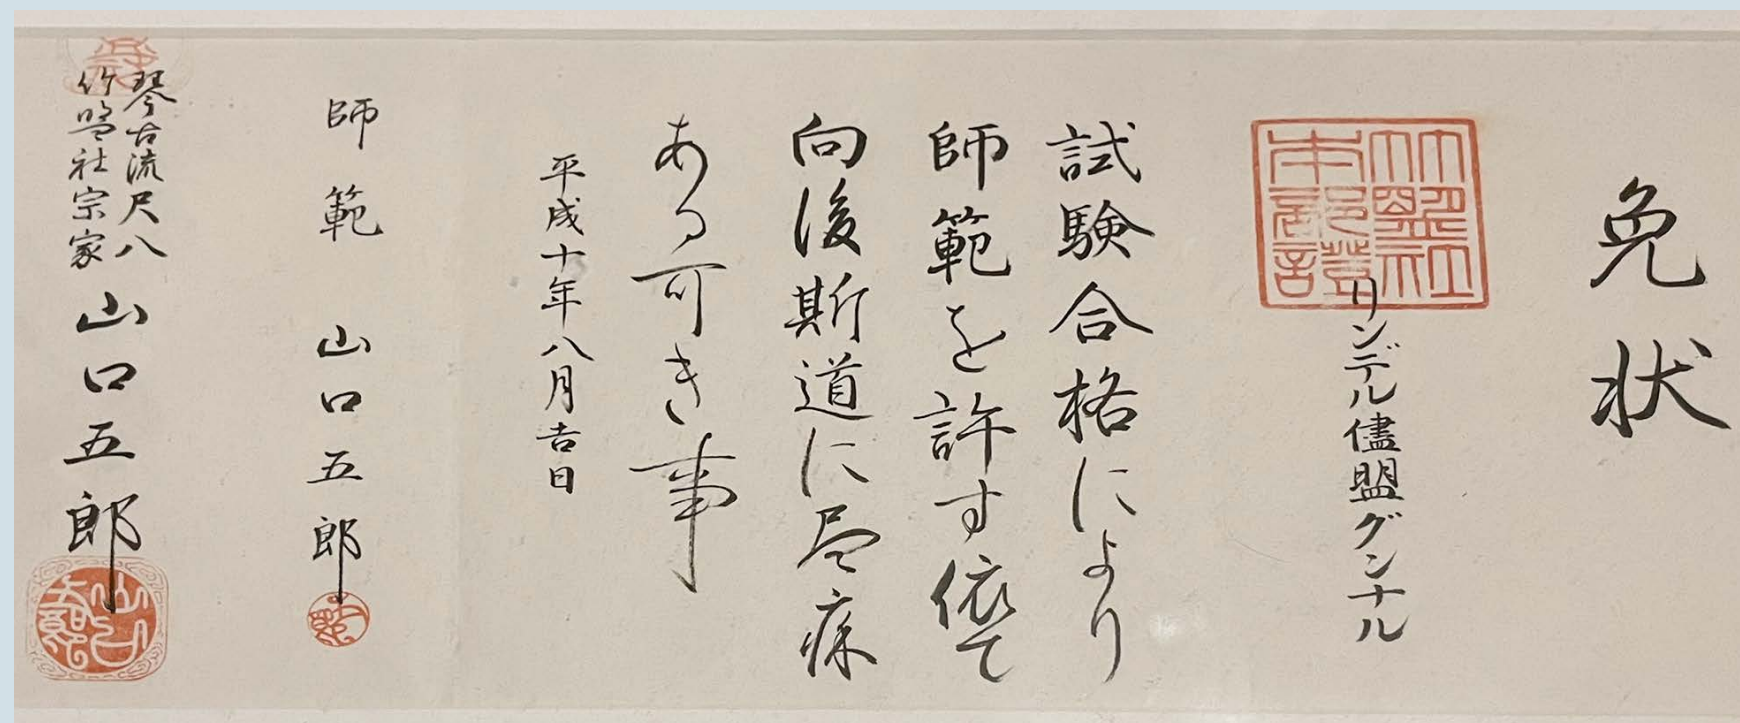 免状
リンデル儘盟グンナル
試験合格により
師範を許す依て
向後斯道に尽瘁
ある可き事
平成十年八月吉日
師範 山口五郎
琴古流尺八
竹盟社宗家 山口五郎